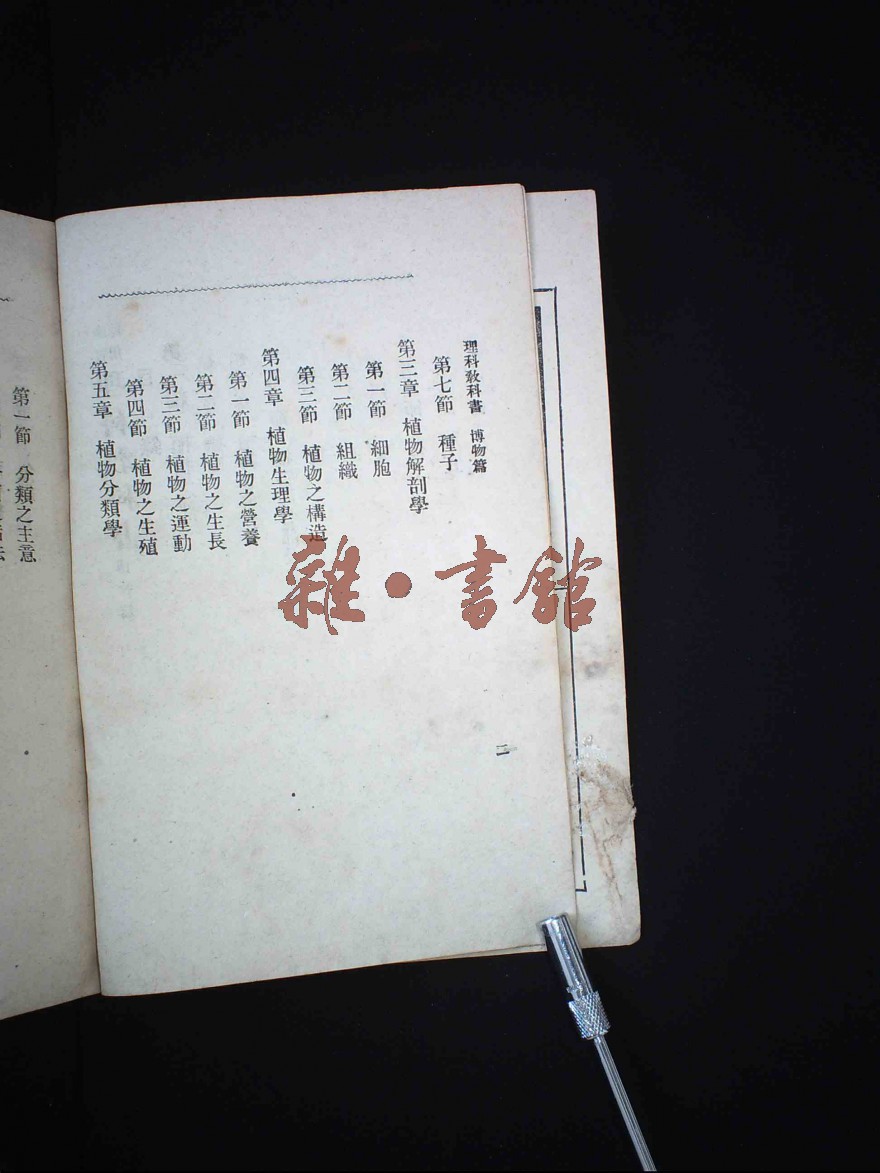 理科教科書 博物篇
第七節 種子
第三章 植物解剖學
第一節 細胞
第二節 組織
第三節 植物之構造
第四章 植物生理學
第一節 植物之營養
第二節 植物之生長
第三節 植物之運動
第四節 植物之生殖
第五章 植物分類學
二
第一節 分類之主意
雜·書館